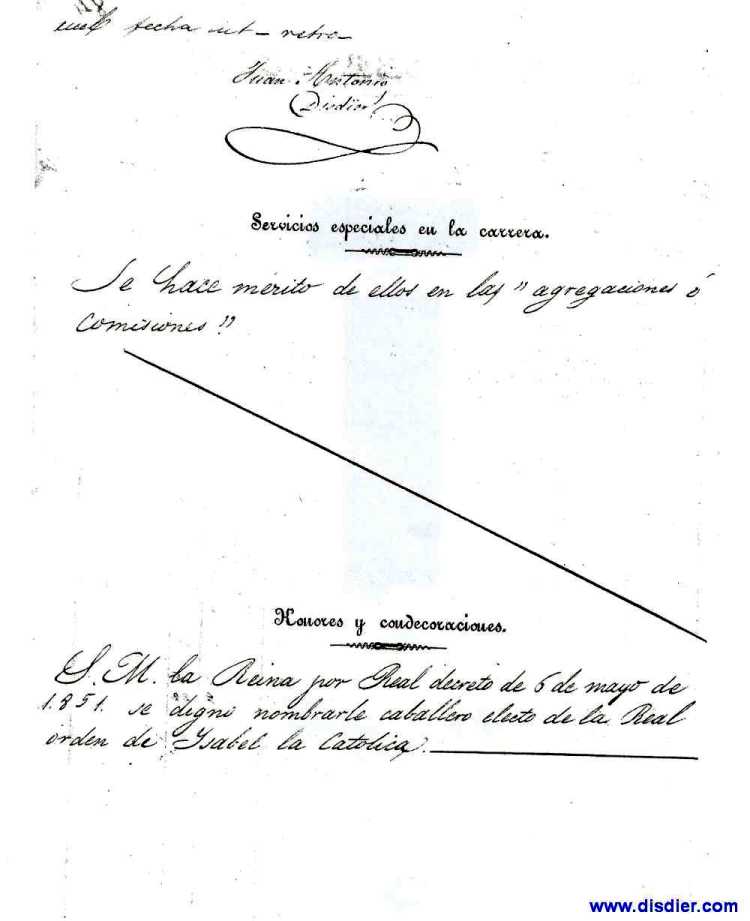 fecha ut retro
Juan Antonio
Disdier
Servicios especiales en la carrera.
Se hace merito de ellos en las "agregaciones ó
comisiones"
Honores y condecoraciones.
S. M. la Reina por Real decreto de 6 de mayo de
1.851. se digni nombrarle caballero electo de la Real
orden de Ysabel la Catolica.
www.disdier.com